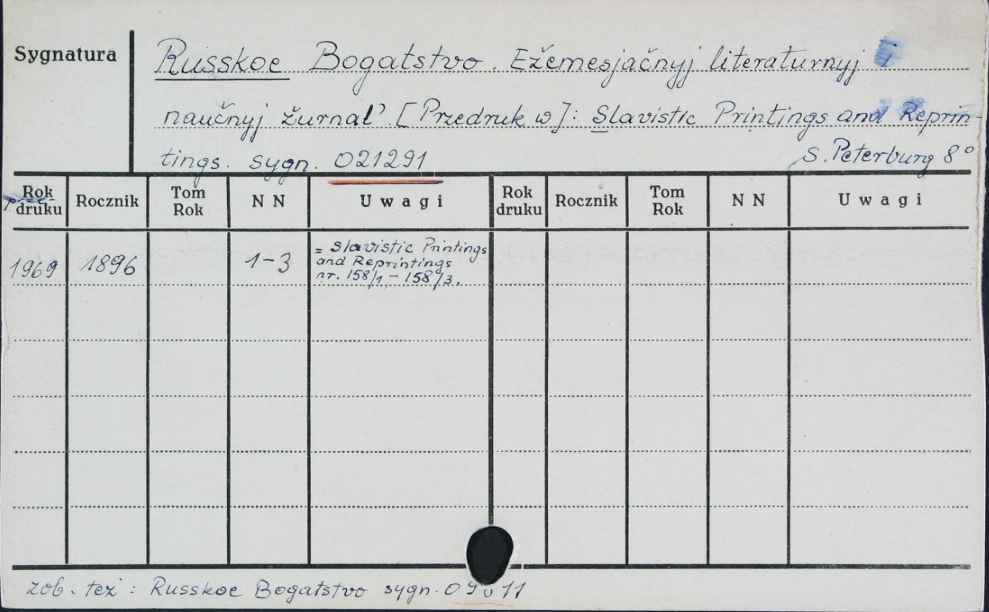 Sygnatura
Russkoe Bogatstvo. Ežemesjačnyj literaturnyj i
naučnyj žurnal'. [Przedruk w]: Slavistic Printings and Reprin-
tings. sygn. 021291 S. Peterburg 8°
Rok druku Rocznik Tom Rok N N Uwagi Rok druku Rocznik Tom Rok N N Uwagi
1969 1896 1-3 = Slavistic Printings
and Reprintings
nr. 158/1 - 158/3.
zob. też : Russkoe Bogatstvo sygn.